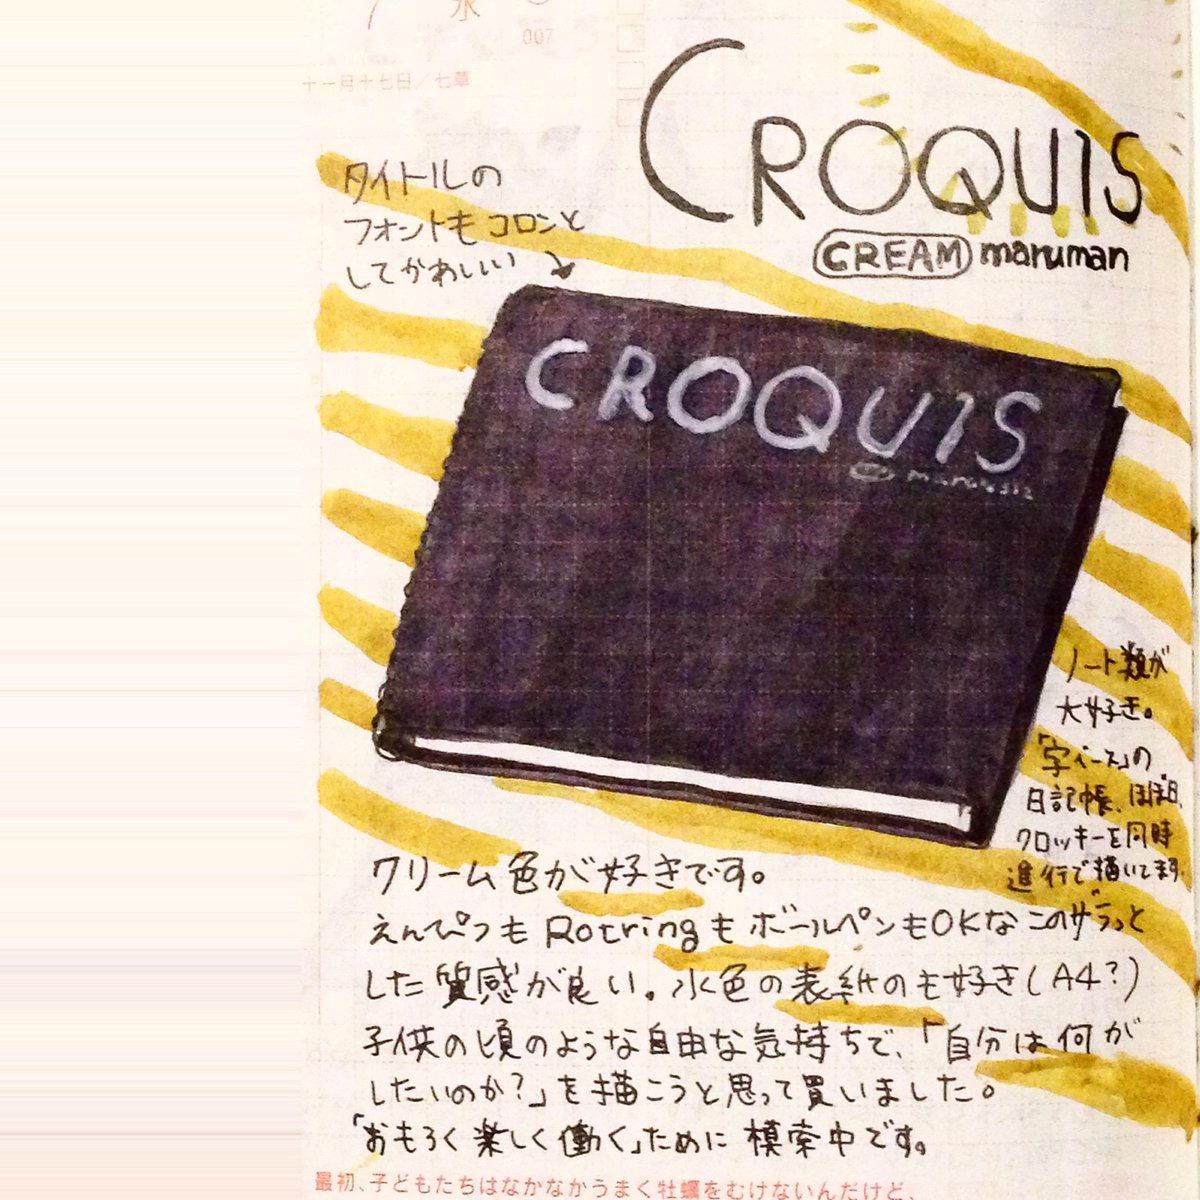 7 水
007
十一月十七日／七草
CROQUIS
CREAM maruman
タイトルの
フォントもコロンと
してかわいい
CROQUIS
ノート類が
大好き。
「字ベース」の
日記帳、ほぼ日、
クロッキーを同時
進行で描いてます。
クリーム色が好きです。
えんぴつもRotringもボールペンもOKなこのザラっと
した質感が良い。水色の表紙のも好き(A4?)
子供の頃のような自由な気持ちで、「自分は何が
したいのか?」を描こうと思って買いました。
「おもろく楽しく働く」ために模索中です。
最初、子どもたちはなかなかうまく牡蠣をむけないんだけど、